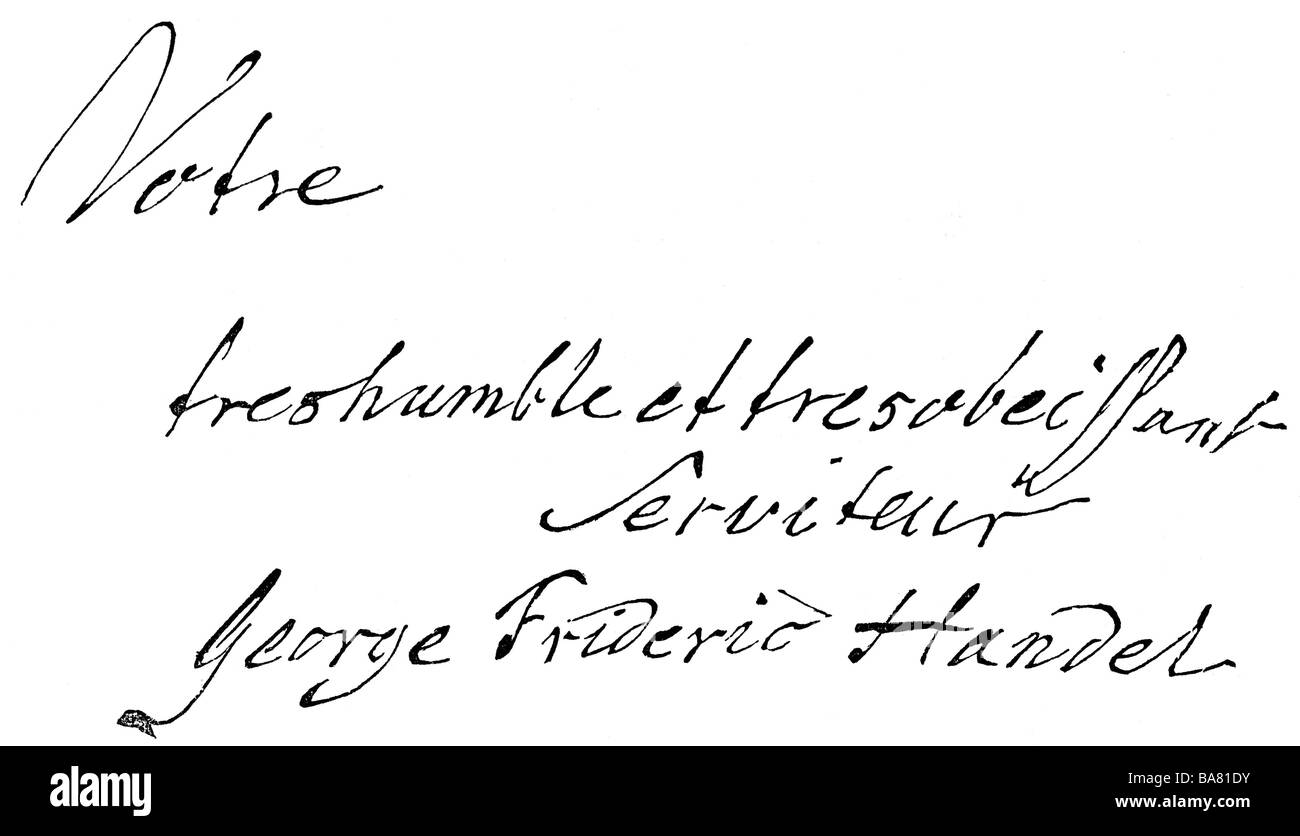 Votre
treshumble et tresobeissant
Serviteur
George Frideric Handel
alamy
Image ID: BA81DY
www.alamy.com